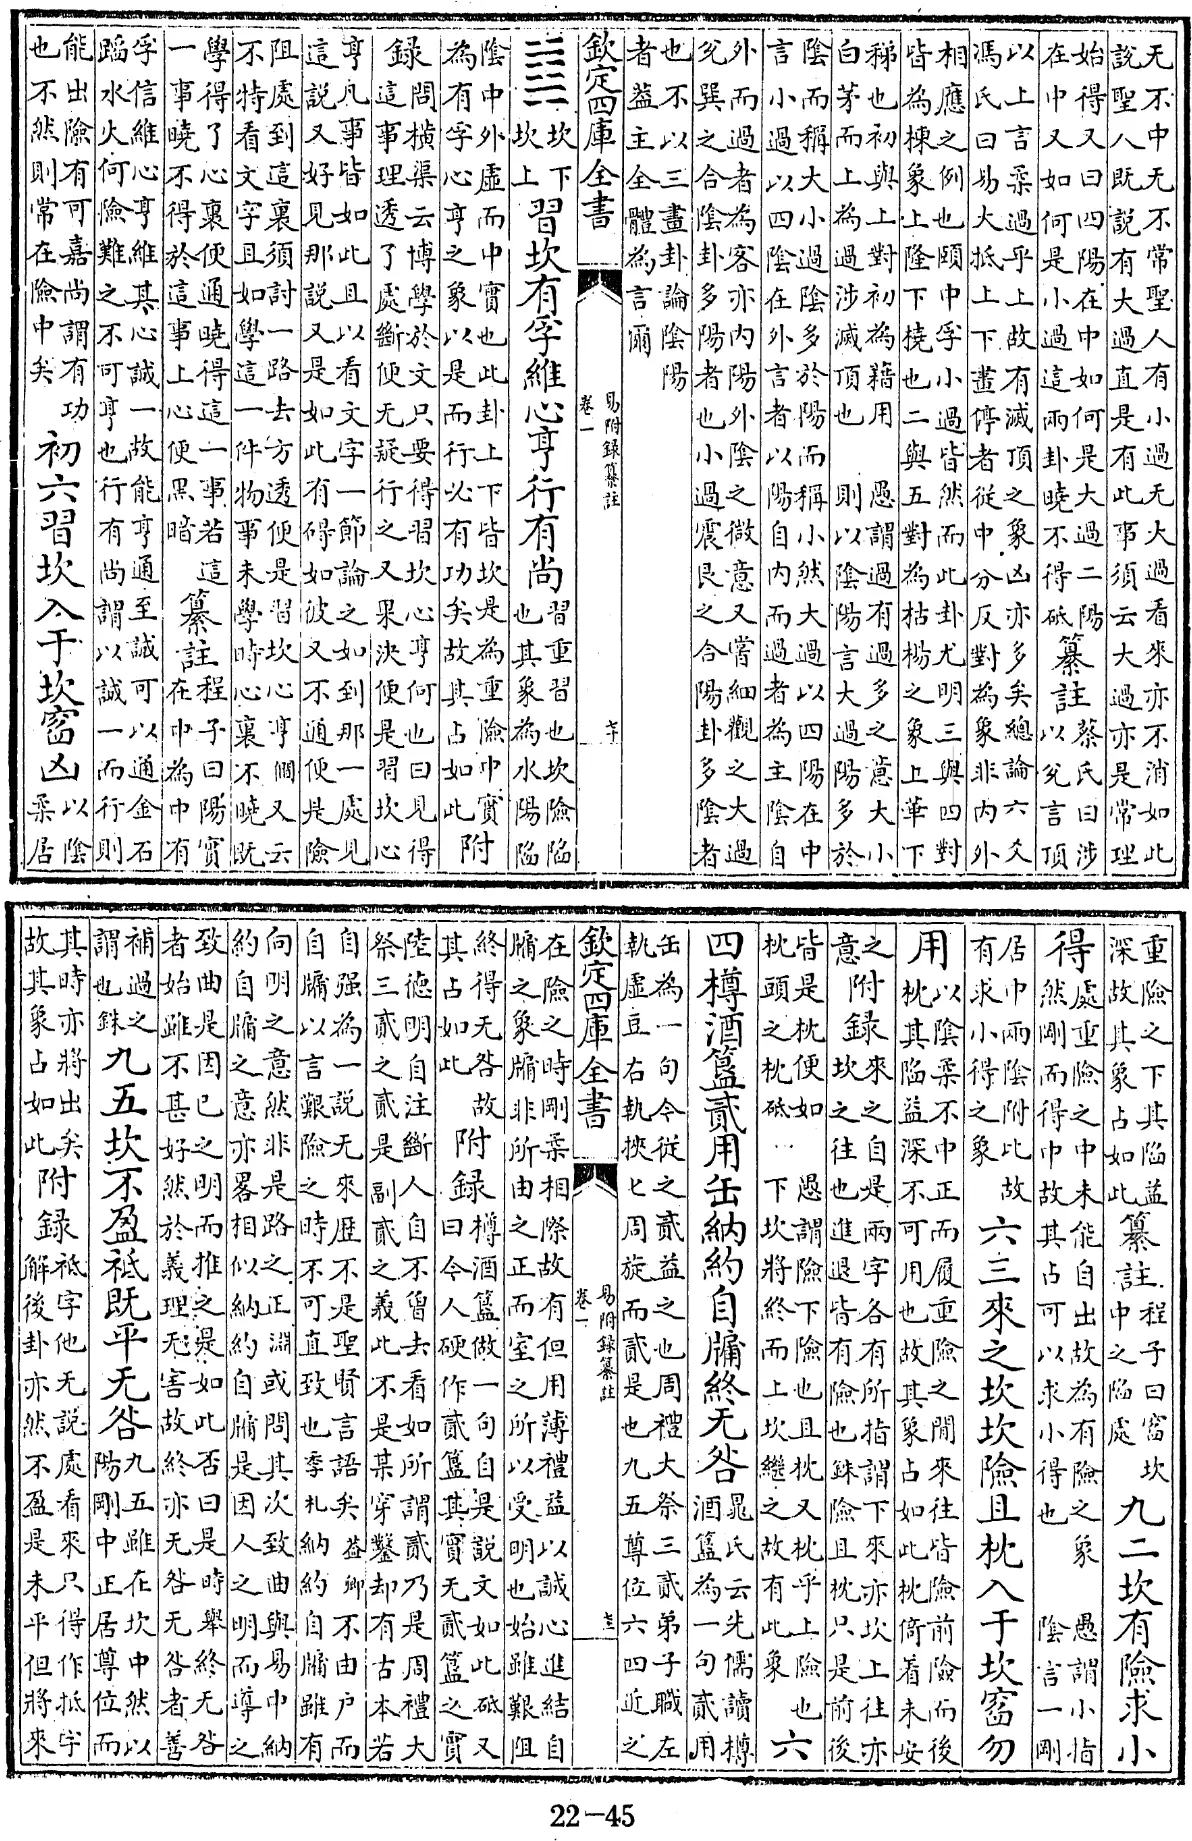 无不中无不常聖人有小過无大過看來亦不消如此
說聖人既說有大過直是有此事須云大過亦是常理
始得又曰四陽在中如何是大過二陽
在中又如何是小過這兩卦曉不得砥
纂註
蔡氏曰涉
以兌言頂
以上言柔過乎上故有滅頂之象凶亦多矣總論六爻
馮氏曰易大抵上下畫停者從中分反對為象非內外
相應之例也頤中孚小過皆然而此卦尤明三與四對
皆為棟象上隆下橈也二與五對為枯楊之象上華下
稊也初與上對初為藉用 愚謂過有過多之意大小
白茅而上為過涉滅頂也 則以陰陽言大過陽多於
陰而稱大小過陰多於陽而稱小然大過以四陽在中
言小過以四陰在外言者以陽自內而過者為主陰自
外而過者為客亦內陽外陰之微意又嘗細觀之大過
兌巽之合陰卦多陽者也小過震艮之合陽卦多陰者
也不以三畫卦論陰陽
者蓋主全體為言爾
欽定四庫全書
易附錄纂註
卷一
七十
☵☵
坎下
坎上
習坎有孚維心亨行有尚
習重習也坎險陷
也其象為水陽陷
陰中外虛而中實也此卦上下皆坎是為重險中實
為有孚心亨之象以是而行必有功矣故其占如此
附
錄
問橫渠云博學於文只要得習坎心亨何也曰見得
這事理透了處斷便无疑行之又果決便是習坎心
亨凡事皆如此且以看文字一節論之如到那一處見
這說又好見那說又是如此有碍如彼又不通便是險
阻處到這裏須討一路去方透便是習坎心亨僩又云
不特看文字且如學這一件物事未學時心裏不曉既
學得了心裏便通曉得這一事若這
一事曉不得於這事上心便黑暗
纂註
程子曰陽實
在中為中有
孚信維心亨維其心誠一故能亨通至誠可以通金石
蹈水火何險難之不可亨也行有尚謂以誠一而行則
能出險有可嘉尚謂有功
也不然則常在險中矣
初六習坎入于坎窞凶
以陰
柔居
重險之下其陷益
深故其象占如此
纂註
程子曰窞坎
中之陷處
九二坎有險求小
得
處重險之中未能自出故為有險之象 愚謂小指
然剛而得中故其占可以求小得也 陰言一剛
居中兩陰附此故
有求小得之象
六三來之坎坎險且枕入于坎窞勿
用
以陰柔不中正而履重險之間來往皆險前險而後
枕其陷益深不可用也故其象占如此枕倚着未安
之
意
附錄
來之自是兩字各有所指謂下來亦坎上往亦
坎之往也進退皆有險也銖險且枕只是前後
皆是枕便如 愚謂險下險也且枕又枕乎上險也
枕頭之枕砥 下坎將終而上坎繼之故有此象
六
四樽酒簋貳用缶納約自牖終无咎
晁氏云先儒讀樽
酒簋為一句貳用
缶為一句今從之貳益之也周禮大祭三貳弟子職左
執虛豆右執挾匕周旋而貳是也九五尊位六四近之
在險之時剛柔相際故有但用薄禮益以誠心進結自
牖之象牖非所由之正而室之所以受明也始雖艱阻
終得无咎故
其占如此
附錄
樽酒簋做一句自是說文如此砥又
曰今人硬作貳簋其實无貳簋之實
陸德明自注斷人自不曾去看如所謂貳乃是周禮大
祭三貳之貳是副貳之義此不是某穿鑿却有古本若
自强為一說无來歷不是聖賢言語矣益卿不由户而
自牖以言艱險之時不可直致也季札納約自牖雖有
向明之意然非是路之正淵或問其次致曲與易中納
約自牖之意亦畧相似納約自牖是因人之明而導之
致曲是因已之明而推之是如此否曰是時舉終无咎
者始雖不甚好然於義理无害故終亦无咎无咎者善
補過之
謂也銖
九五坎不盈祗既平无咎
九五雖在坎中然以
陽剛中正居尊位而
其時亦將出矣
故其象占如此
附錄
祗字他无說處看來只得作抵字
解後卦亦然不盈是未平但將來
欽定四庫全書
易附錄纂註
卷一
22-45